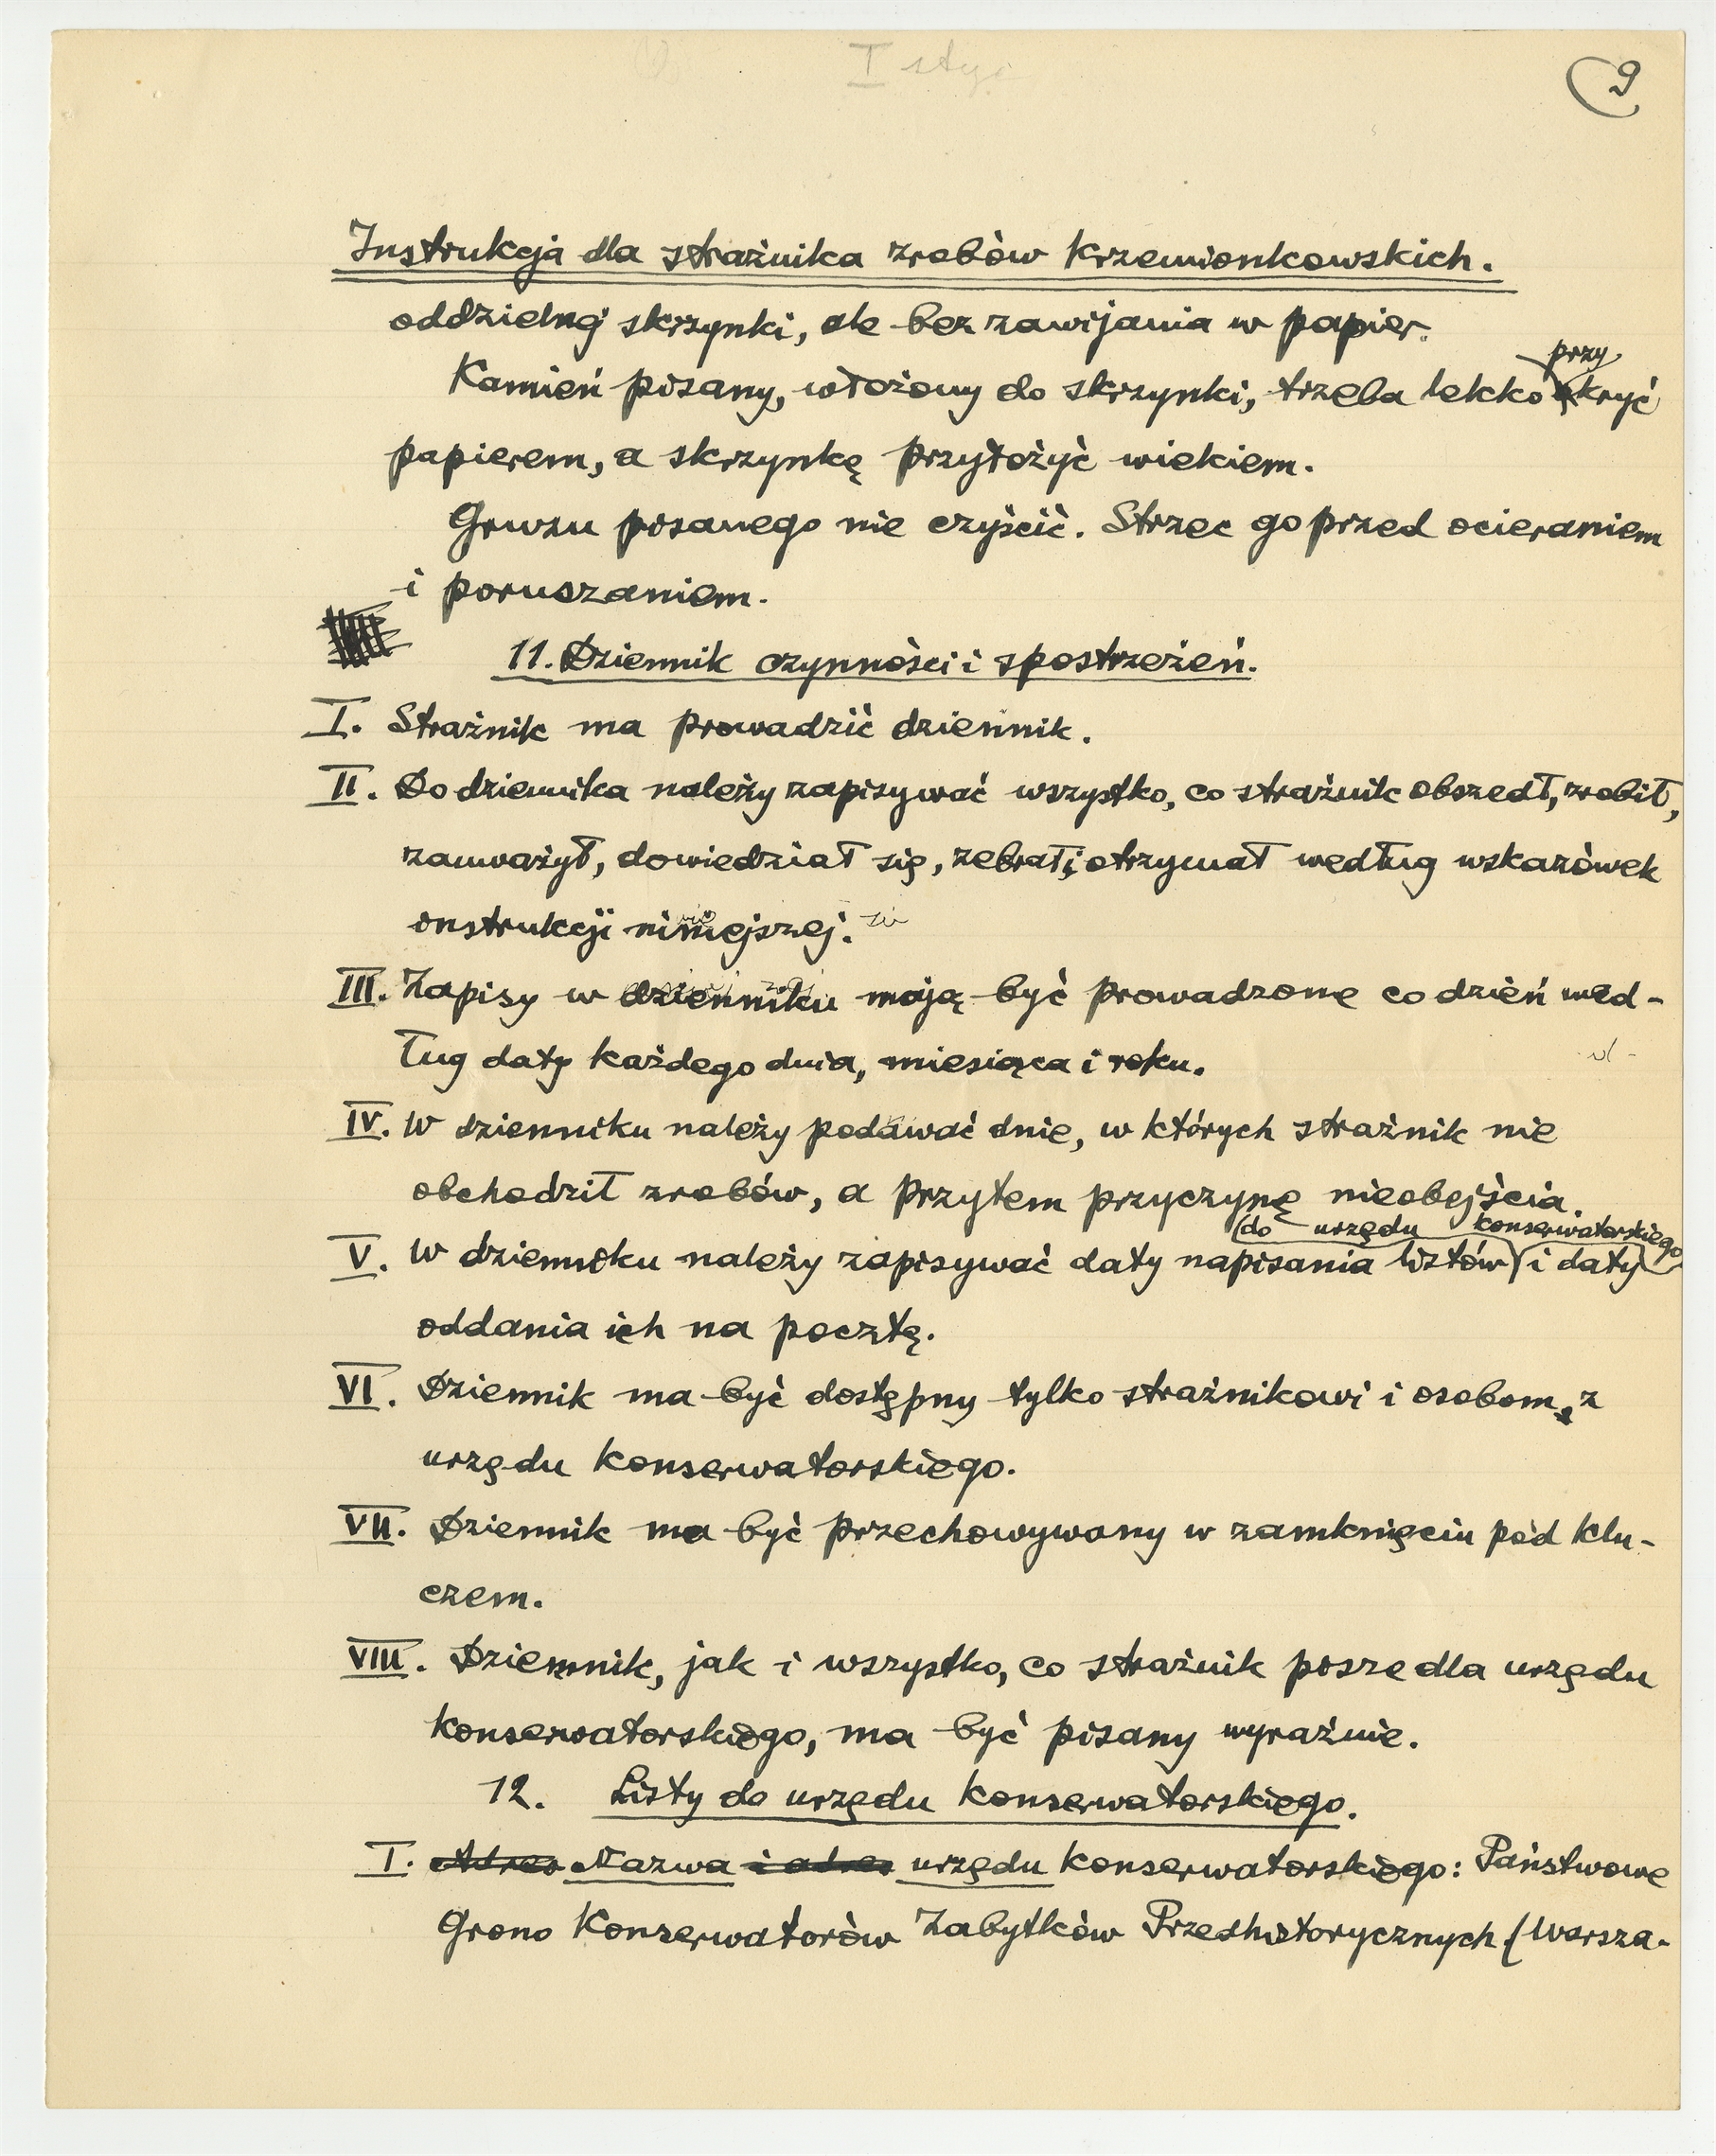 I
9
Instrukcja dla strażnika zrobów krzemionkowskich.
oddzielnej skrzynki, ale bez zawijania w papier.
przy
Kamień pisany, włożony do skrzynki, trzeba lekko kryć
papierem, a skrzynkę przyłożyć wiekiem.
Gruzu pisanego nie czyścić. Strzec go przed ocieraniem
i poruszaniem.
11. Dziennik czynności i spostrzeżeń.
I. Strażnik ma prowadzić dziennik.
II. Do dziennika należy zapisywać wszystko, co strażnik obszedł, zrobił,
zauważył, dowiedział się, zebrał i otrzymał według wskazówek
instrukcji niniejszej.
III. Zapisy w dzienniku mają być prowadzone co dzień wed-
ług daty każdego dnia, miesiąca i roku.
IV. W dzienniku należy podawać dnie, w których strażnik nie
obchodził zrobów, a przytem przyczynę nieobejścia.
(do urzędu konserwatorskiego)
V. W dzienniku należy zapisywać daty napisania listów i daty
oddania ich na pocztę.
VI. Dziennik ma być dostępny tylko strażnikowi i osobom z
urzędu konserwatorskiego.
VII. Dziennik ma być przechowywany w zamknięciu pod klu-
czem.
VIII. Dziennik, jak i wszystko, co strażnik pisze dla urzędu
konserwatorskiego, ma być pisany wyraźnie.
12. Listy do urzędu konserwatorskiego.
I. Adres Nazwa i adres urzędu konserwatorskiego: Państwowe
Grono Konserwatorów Zabytków Przedhistorycznych (Warsza-